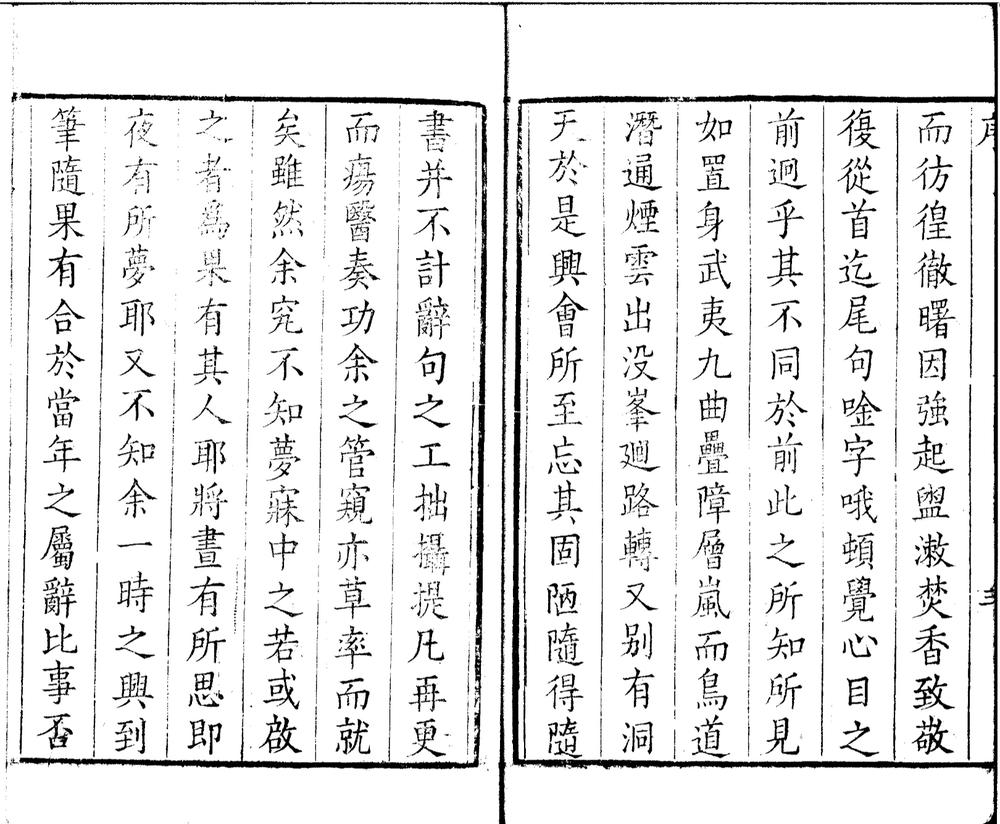 而彷徨徹曙因強起盥漱焚香致敬
復從首迄尾句唫字哦頓覺心目之
前迥乎其不同於前此之所知所見
如置身武夷九曲疊障層嵐而鳥道
潛通煙雲出没峯廻路轉又别有洞
天於是興會所至忘其固陋隨得隨
書并不計辭句之工拙攝提凡再更
而瘍醫奏功余之管窺亦草率而就
矣雖然余究不知夢寐中之若或啟
之者爲果有其人耶將晝有所思即
夜有所夢耶又不知余一時之興到
筆隨果有合於當年之屬辭比事否